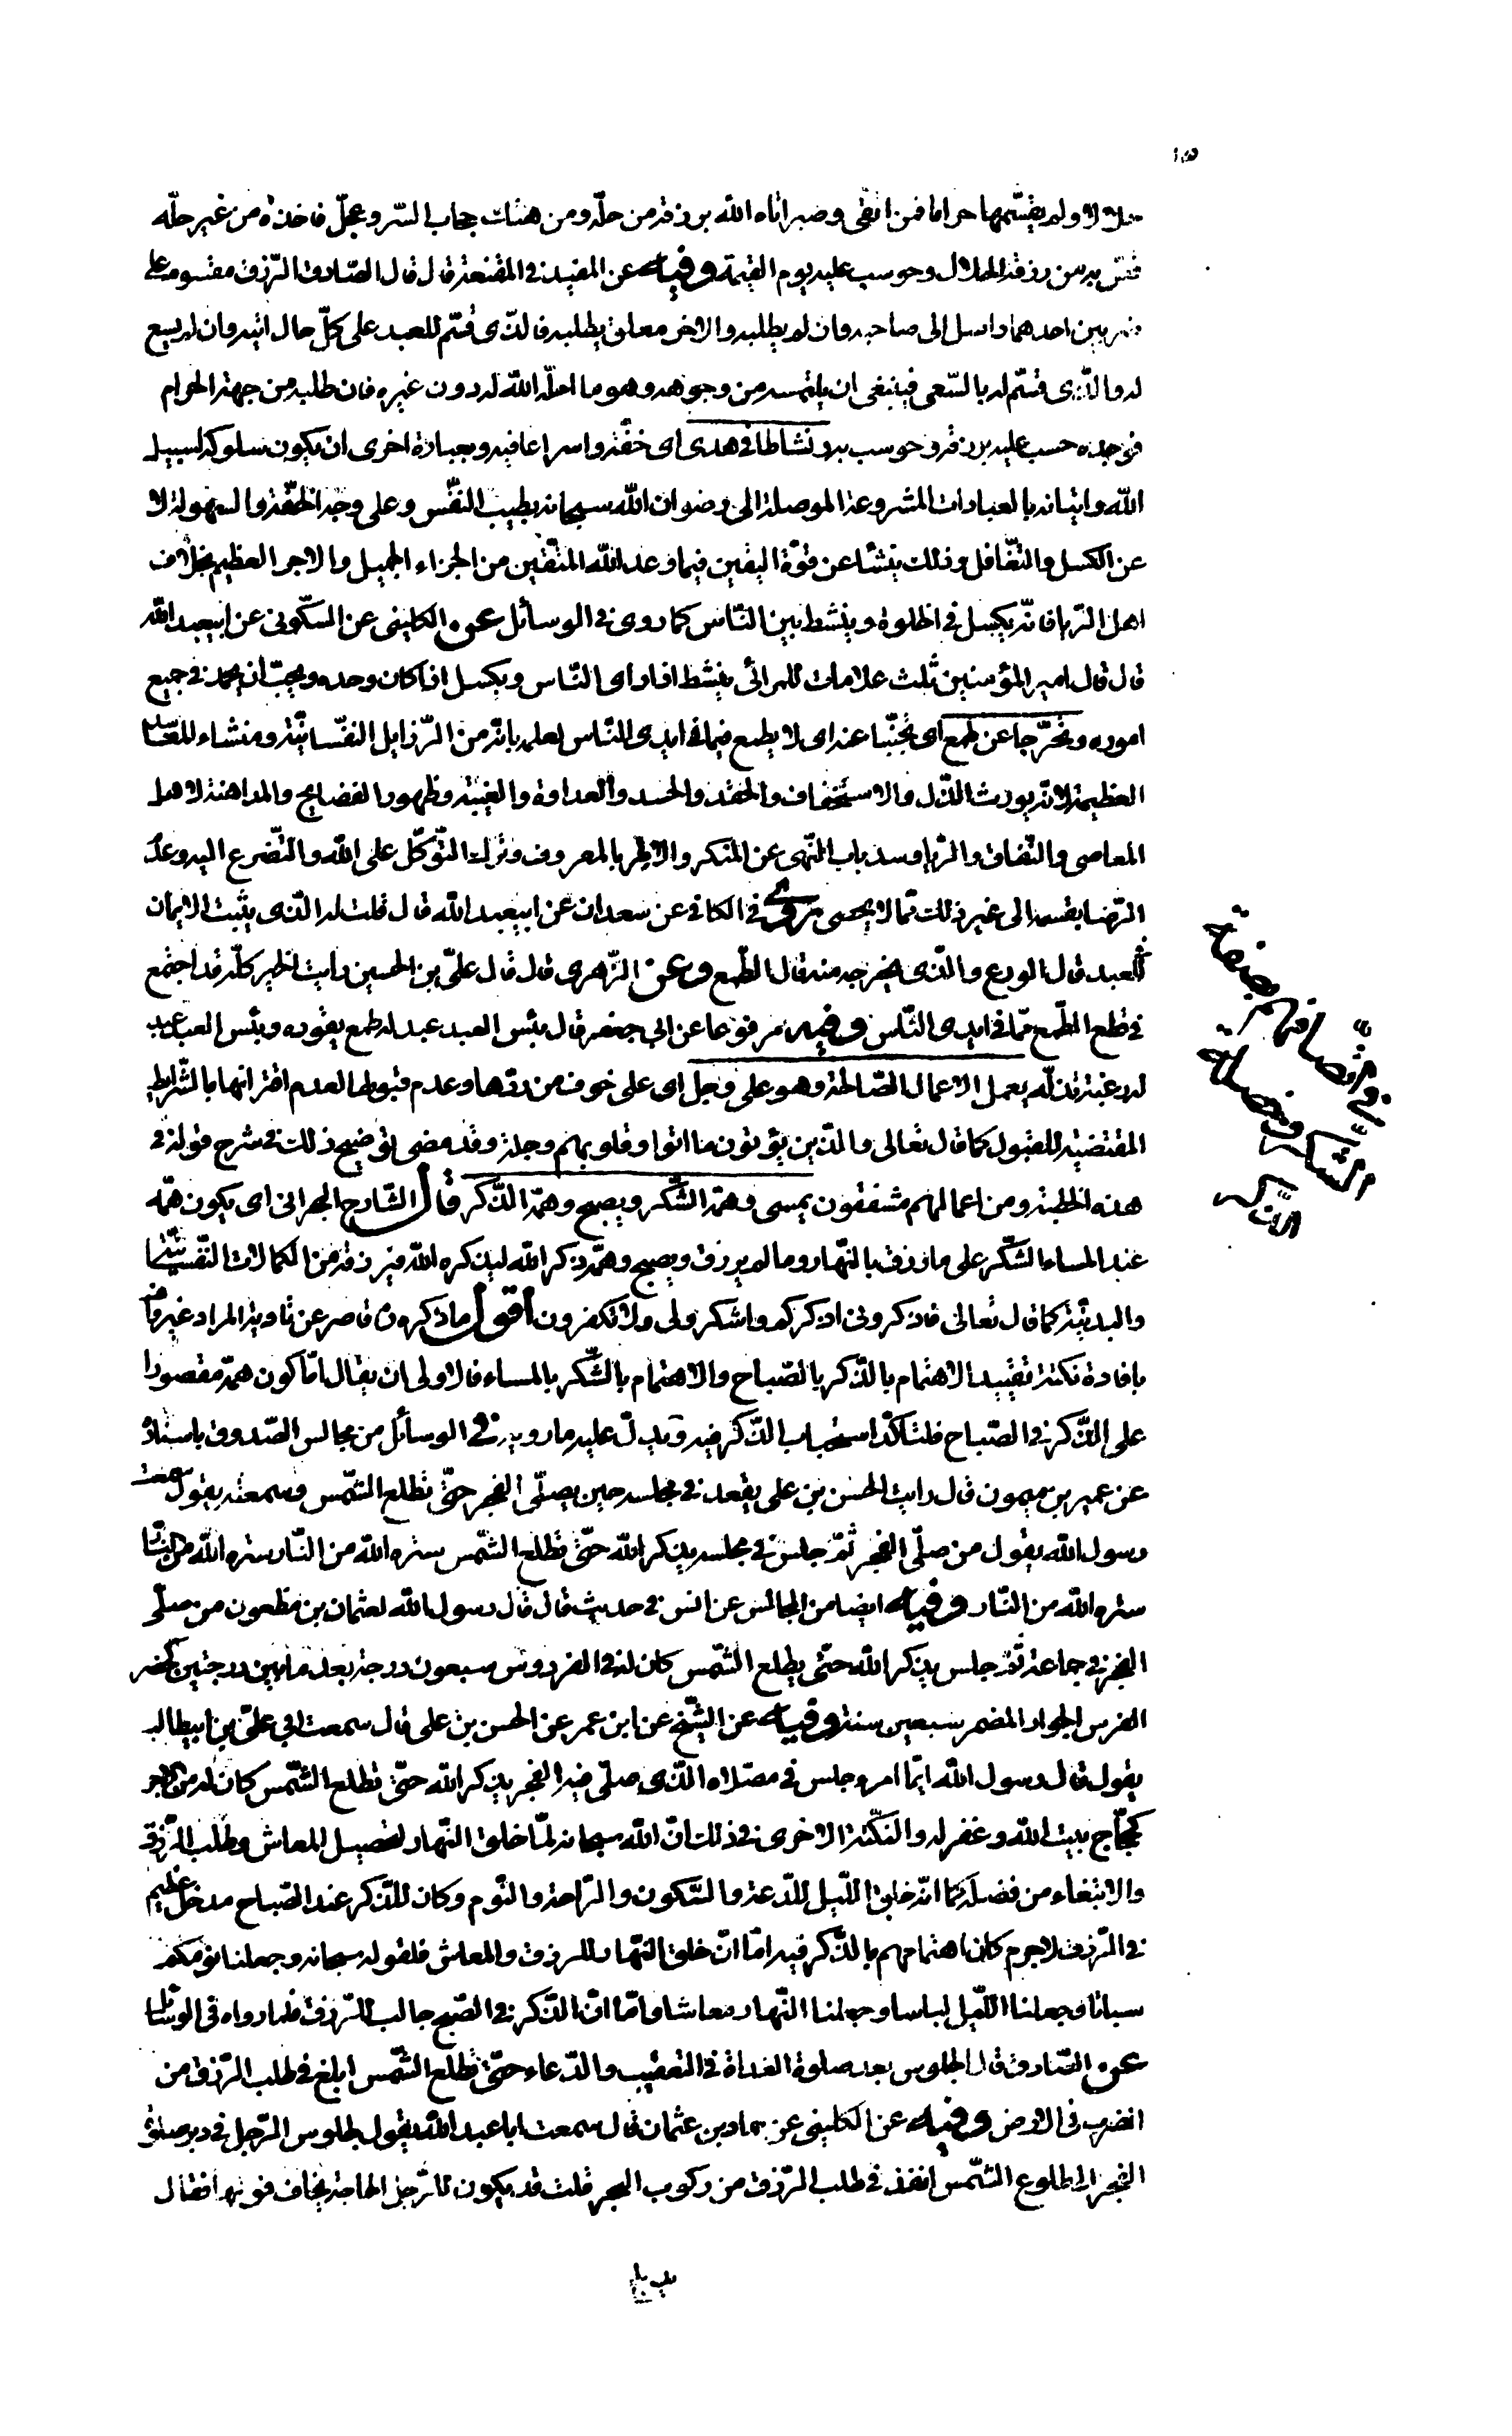 حلالا ولم يقسّمها حراما فمن اتّقى وصبر اتاه الله برزقه من حلّه ومن هتك حجاب السّر وعجّل فاخذه من غير حلّه
قصّ به من رزقه الحلال وحوسب عليه يوم القيمة وفيه عن المفيد في المقنعة قال قال الصّادق الرّزق مقسوم على
ضربين احدهما واصل الى صاحبه وان لم يطلبه والاخر معلق بطلبه فالّذى قسّم للعبد على كلّ حال اتيه وان لم يسع
له والّذى قسّم له بالسّعى فينبغى ان يلتمسه من وجوهه وهو ما احلّه الله له دون غيره فان طلبه من جهة الحرام
فوجده حسب عليه برزقه وحوسب به ونشاطا في هدى اى خفّة واسراعا فيه وبعبارة اخرى ان يكون سلوكه لسبيل
الله واتيانه بالعبادات المشروعة الموصلة الى رضوان الله سبحانه بطيب النّفس وعلى وجه الخفّة والسهولة لا
عن الكسل والتّغافل وذلك ينشأ عن قوّة اليقين فيما وعد الله المتّقين من الجزاء الجميل والاجر العظيم بخلاف
اهل الرّيا فانّه يكسل في الخلوة وينشط بين النّاس كما روى في الوسائل عن الكلينى عن السّكونى عن ابيعبد الله
قال قال امير المؤمنين ثلث علامات للمرائى ينشط اذا راى النّاس ويكسل اذا كان وحده ويحبّ ان يحمد في جميع
اموره وتحرّجا عن طمع اى تجنّبا عنه اى لا يطمع فيما في ايدى النّاس لعلمه بانّه من الرّذايل النفّسانيّة ومنشاء للمفاسد
العظيمة لانّه يورث الذّل والاستخفاف والحقد والحسد والعداوة والغيبة وظهور الفضايح والمداهنة لاهل
المعاصى والنّفاق والرّيا وسد باب النّهى عن المنكر والامر بالمعروف وترك التّوكّل على الله والتّضرع اليه وعدم
الرّضا بقسمه الى غير ذلك ممّا لا يحصى روى في الكافي عن سعدان عن ابيعبد الله قال قلت له الّذى يثبت الايمان
في العبد قال الورع والّذى يخرجه منه قال الطّمع وعن الزّهرى قال قال علىّ بن الحسين رايت الخير كلّه قد اجتمع
في قطع الطّمع عمّا في ايدى النّاس وفيه مرفوعا عن ابى جعفر قال بئس العبد عبد له طمع يقوده وبئس العبد عبد
له رغبة تذلّه يعمل الاعمال الصّالحة وهو على وجل اى على خوف من ردّها وعدم قبولها لعدم اقترانها بالشّرايط
المقتضية للقبول كما قال تعالى والّذين يؤتون ما اتوا وقلوبهم وجلة وقد مضى توضيح ذلك في شرح قوله في
هذه الخطبة ومن اعمالهم مشفقون يمسى وهمّه الشّكر ويصبح وهمّه الذّكر قال الشّارح البحرانى اى يكون همّه
عند المساء الشّكر على ما رزق بالنّهار وما لم يرزق ويصبح وهمّه ذكر الله ليذكره الله فيرزقه من الكمالات النّفسانيّة
والبدنيّة كما قال تعالى فاذكرونى اذكركم واشكروا لى ولا تكفرون اقول ما ذكره ره قاصر عن تادية المراد غير واف
بافادة نكتة تقييد الاهتمام بالذّكر بالصّباح والاهتمام بالشّكر بالمساء فالاولى ان يقال امّا كون همّه مقصورا
على الذّكر في الصّباح فلتاكّد استحباب الذّكر فيه ويدلّ عليه ما رويه في الوسائل من مجالس الصّدوق باسناده
عن عمير بن ميمون قال رايت الحسن بن على يقعد في مجلسه حين يصلّى الفجر حتّى تطلع الشّمس وسمعته يقول سمعت
رسول الله يقول من صلّى الفجر ثمّ جلس في مجلسه يذكر الله حتّى تطلع الشّمس ستره الله من النّار ستره الله من النّار
ستره الله من النّار وفيه ايضا من المجالس عن انس في حديث قال قال رسول الله لعثمان بن مظعون من صلّى
الفجر في جماعة ثمّ جلس يذكر الله حتّى يطلع الشّمس كان له في الفردوس سبعون درجة بعد ما بين درجتين كحضر
الفرس الجواد المضمر سبعين سنة وفيه عن الشّيخ عن ابن عمر عن الحسن بن على قال سمعت ابى علىّ بن ابيطالب
يقول قال رسول الله ايّما امرء جلس في مصلّاه الّذى صلّى فيه الفجر يذكر الله حتّى تطلع الشّمس كان له من الاجر
كحاجّ بيت الله وغفر له والنّكتة الاخرى في ذلك انّ الله سبحانه لمّا خلق النّهار لتحصيل المعاش وطلب الرّزق
والابتغاء من فضله كما انّه خلق اللّيل للدّعة والسّكون والرّاحة والنّوم وكان للذّكر عند الصّباح مدخل عظيم
في الرّزق لاجرم كان اهتمامهم بالذّكر فيه امّا انّ خلق النّهار للرزق والمعاش فلقوله سبحانه وجعلنا نومكم
سباتا وجعلنا اللّيل لباسا وجعلنا النّهار معاشا وامّا انّ الذّكر في الصّبح جالب للرّزق فلما رواه في الوسائل
عن الصّادق قال الجلوس بعد صلوة الغداة في التعقيب والدّعاء حتّى تطلع الشّمس ابلغ في طلب الرّزق من
الضرب في الارض وفيه عن الكلينى عن حماد بن عثمان قال سمعت ابا عبد الله يقول لجلوس الرّجل في دبر صلوة
الفجر الى طلوع الشّمس انفذ في طلب الرّزق من ركوب البحر قلت قد يكون للرّجل الحاجة يخاف فوتها فقال
في اتّصافهم بصفة
الشكر وخصلة
الذّكر